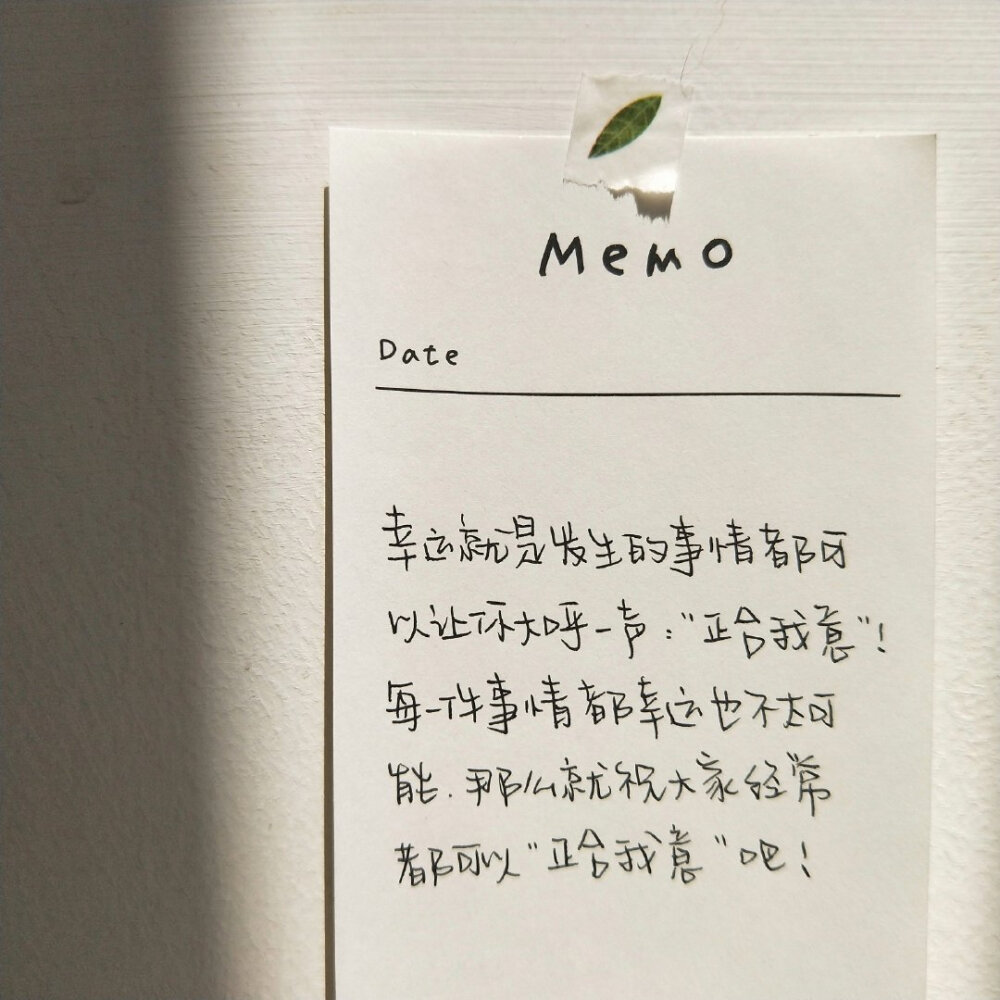 Memo
Date
幸运就是发生的事情都可
以让你大呼一声："正合我意"！
每一件事情都幸运也不太可
能.那么就祝大家经常
都可以"正合我意"吧！